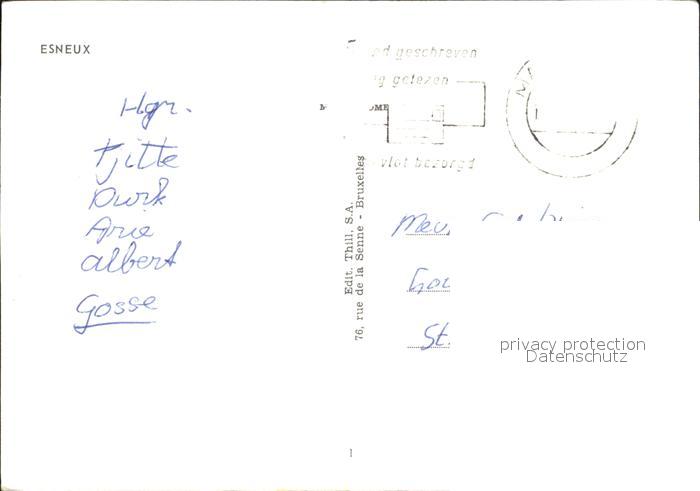 ESNEUX
Hgr.
Tjitte
Durk
Arie
albert
Gosse
geschreven
gelezen
vlot bezorgd
Edit. Thill, S.A.
76, rue de la Senne - Bruxelles
St.
privacy protection
Datenschutz
1